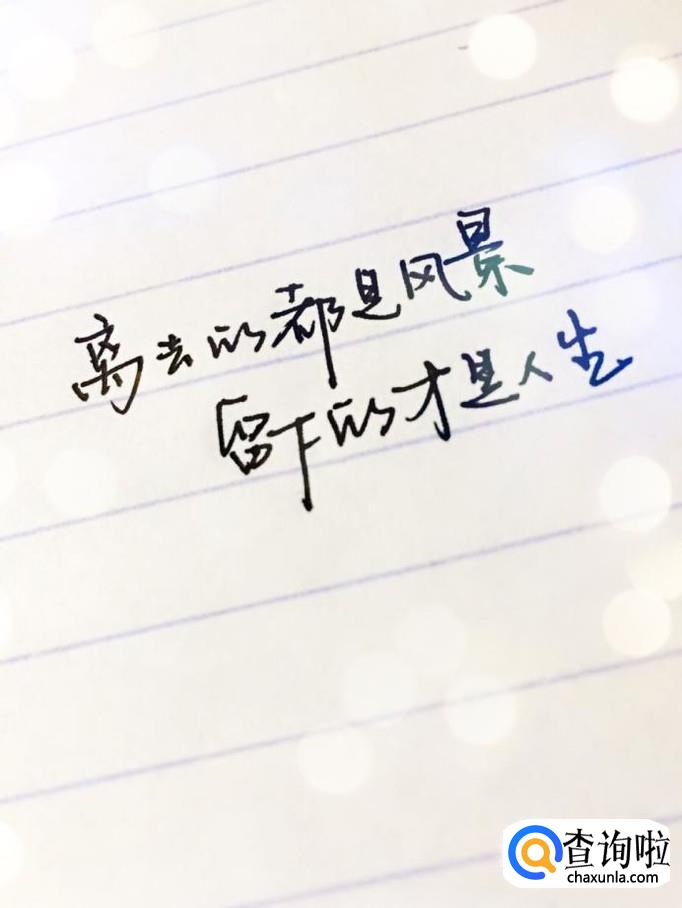 离去的都是风景
留下的才是人生
查询啦
chaxunla.com